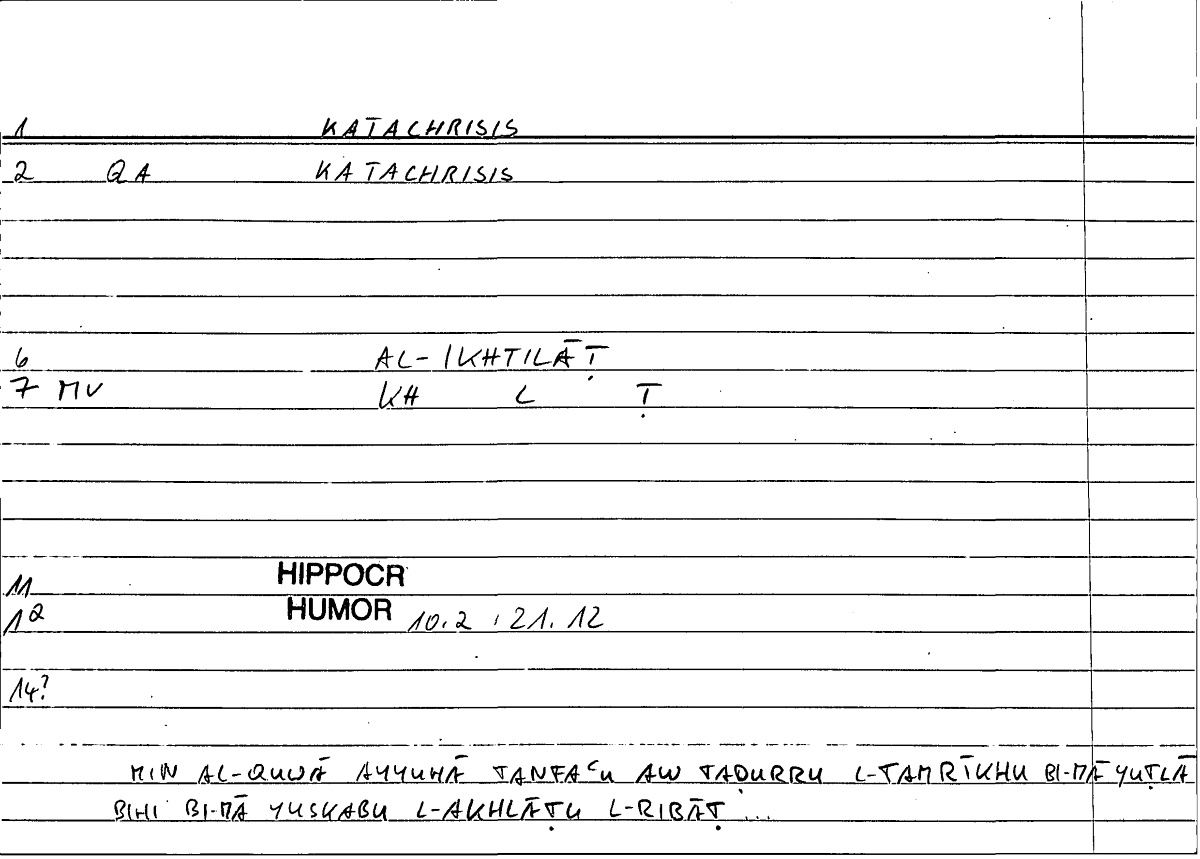 1 KATACHRISIS
2 QA KATACHRISIS
6 AL-IKHTILĀṬ
7 MV KH L Ṭ
11 HIPPOCR
12 HUMOR 10.2 , 21.12
14?
MIN AL-QUWĀ AYYUHĀ TANFAʿU AW TAḌURRU L-TAMRĪKHU BI-MĀ YUṬLĀ
BIHI BI-MĀ YUSKABU L-AKHLĀṬU L-RIBĀṬ ...